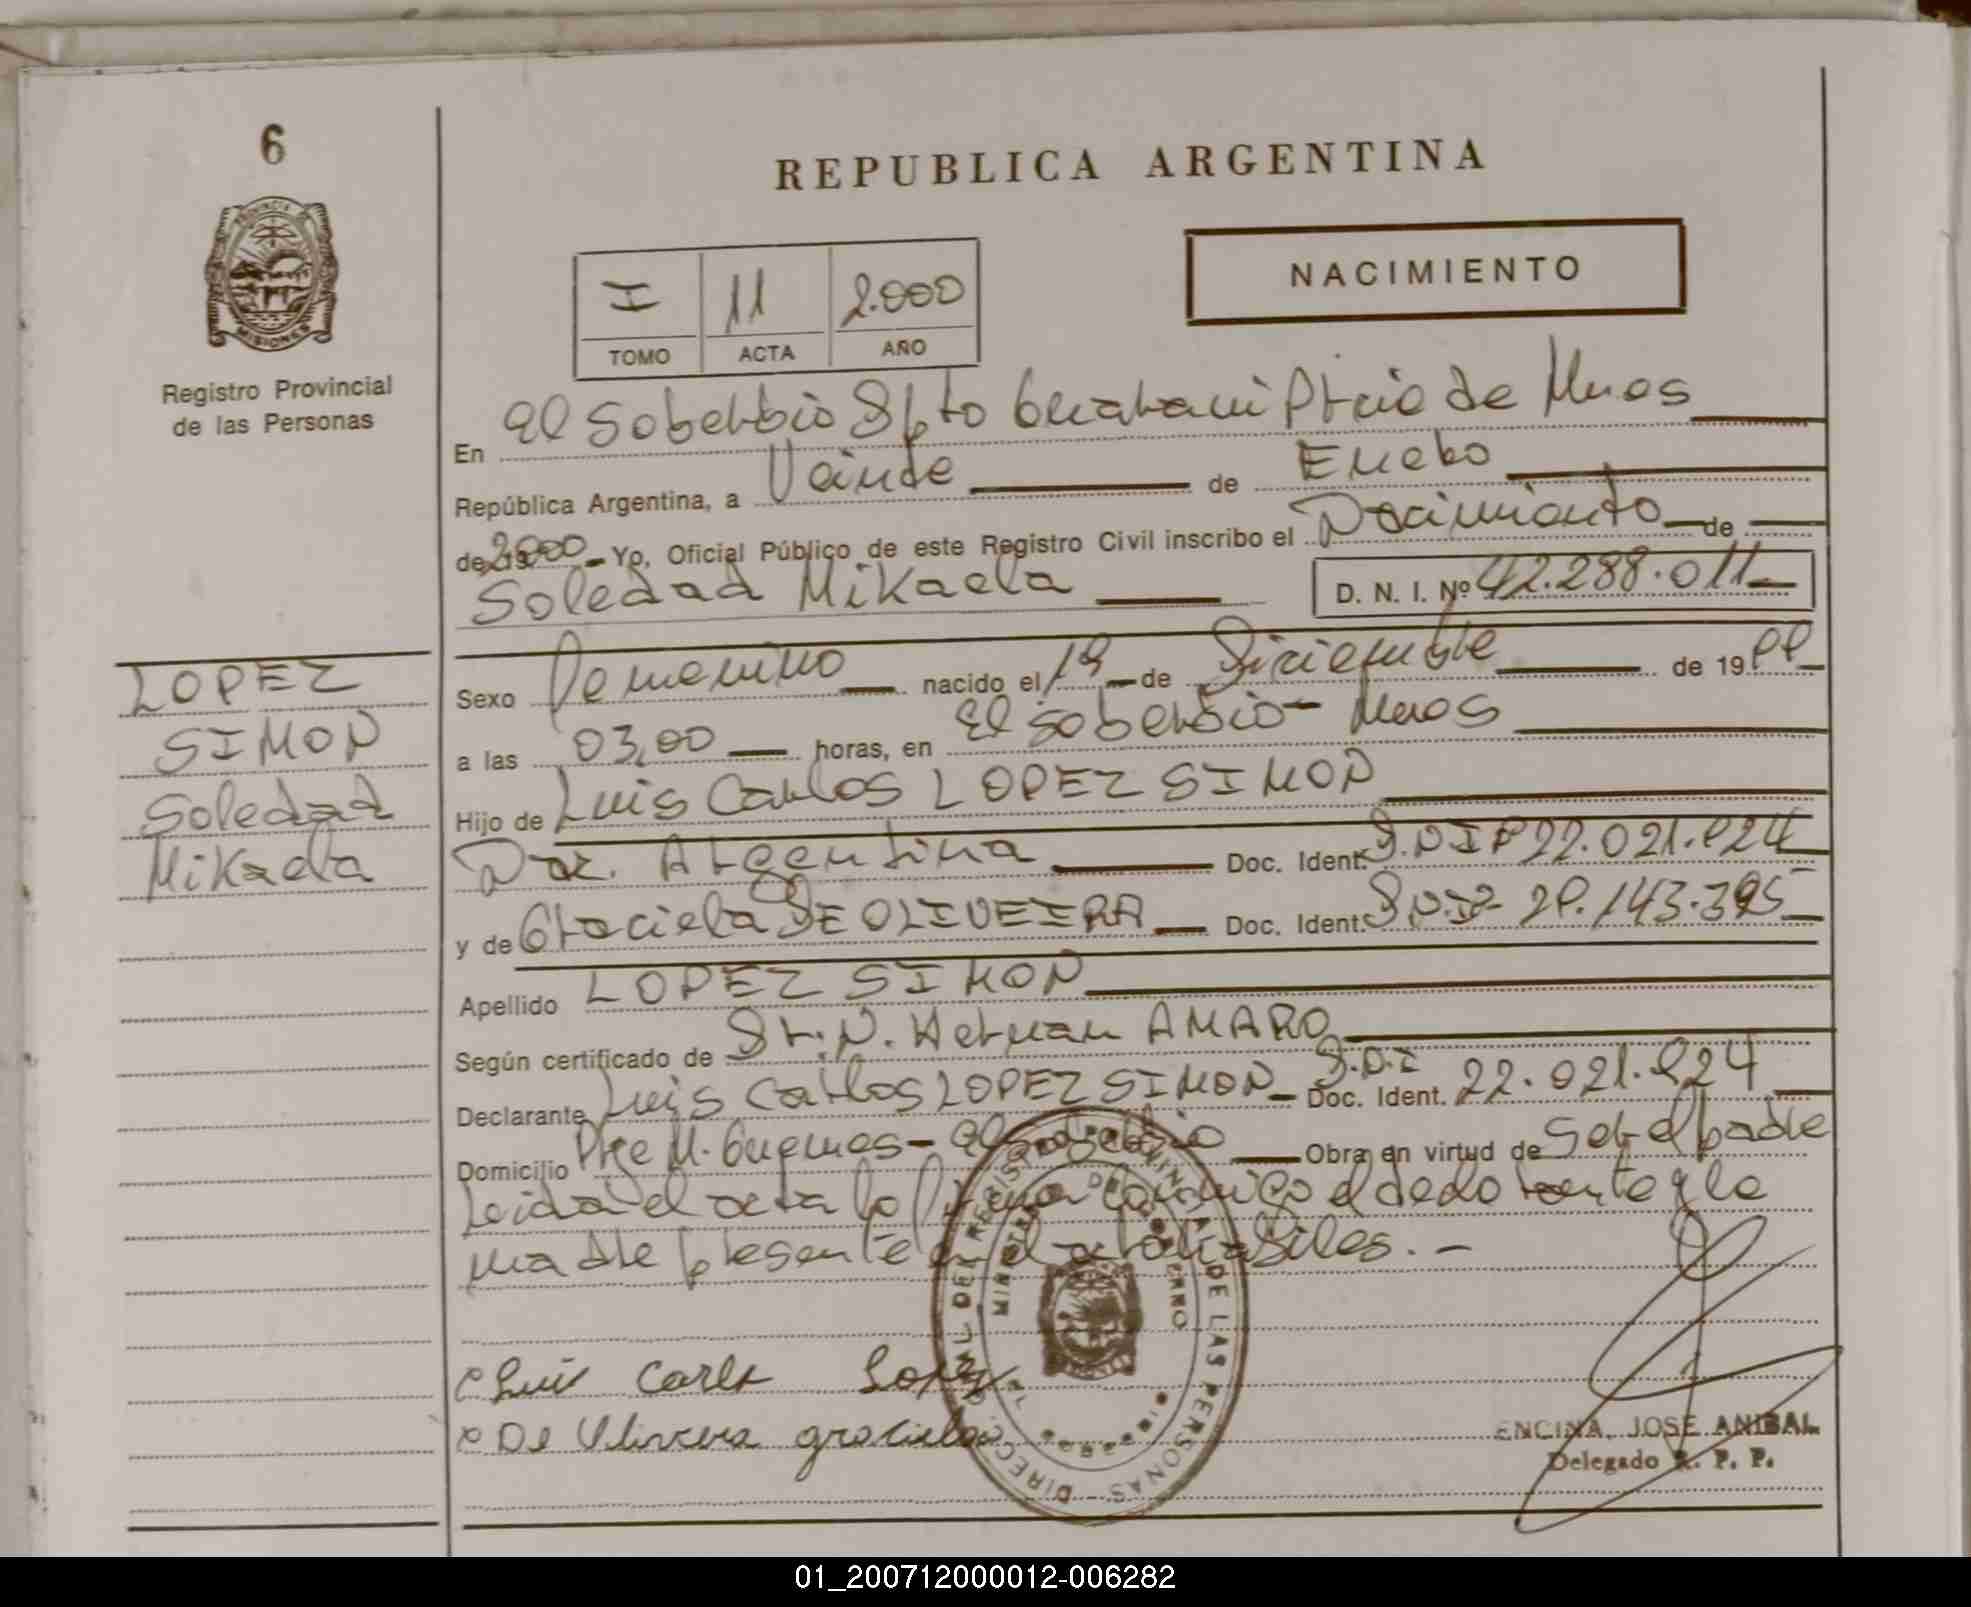 6
REPUBLICA ARGENTINA
PROVINCIA DE
MISIONES
Registro Provincial
de las Personas
I 11 2.000
TOMO ACTA AÑO
NACIMIENTO
En El Soberbio Dpto Guarani Pcia de Mnes
República Argentina, a Veinte de Enero
de 2000 Yo, Oficial Público de este Registro Civil inscribo el Nacimiento de
Soledad Mikaela D. N. I. Nº 42.288.011
LOPEZ
SIMON
Soledad
Mikaela
Sexo Femenino nacido el 19 de Diciembre de 1999
a las 03,00 horas, en El Soberbio - Mnes
Hijo de Luis Carlos LOPEZ SIMON
Nac. Argentina Doc. Ident. D.N.I Nº 22.021.924
y de Graciela DE OLIVEIRA Doc. Ident. D.N.I Nº 29.143.395
Apellido LOPEZ SIMON
Según certificado de Dr. N. Hernan AMARO
Declarante Luis Carlos LOPEZ SIMON D.N.I Doc. Ident. 22.021.924
Domicilio Pje M. Guemes - El Soberbio Obra en virtud de Ser el padre
Leida el acta lo firma conmigo el y la
madre presente en el acto habiles. -
Luis Carlos Lopez
De Oliveira graciela
DIRECC. GRAL. DEL REGISTRO PROVINCIAL DE LAS PERSONAS
MINISTERIO DE GOBIERNO
MISIONES
ENCINA, JOSE ANIBAL
Delegado R. P. P.
01_200712000012-006282